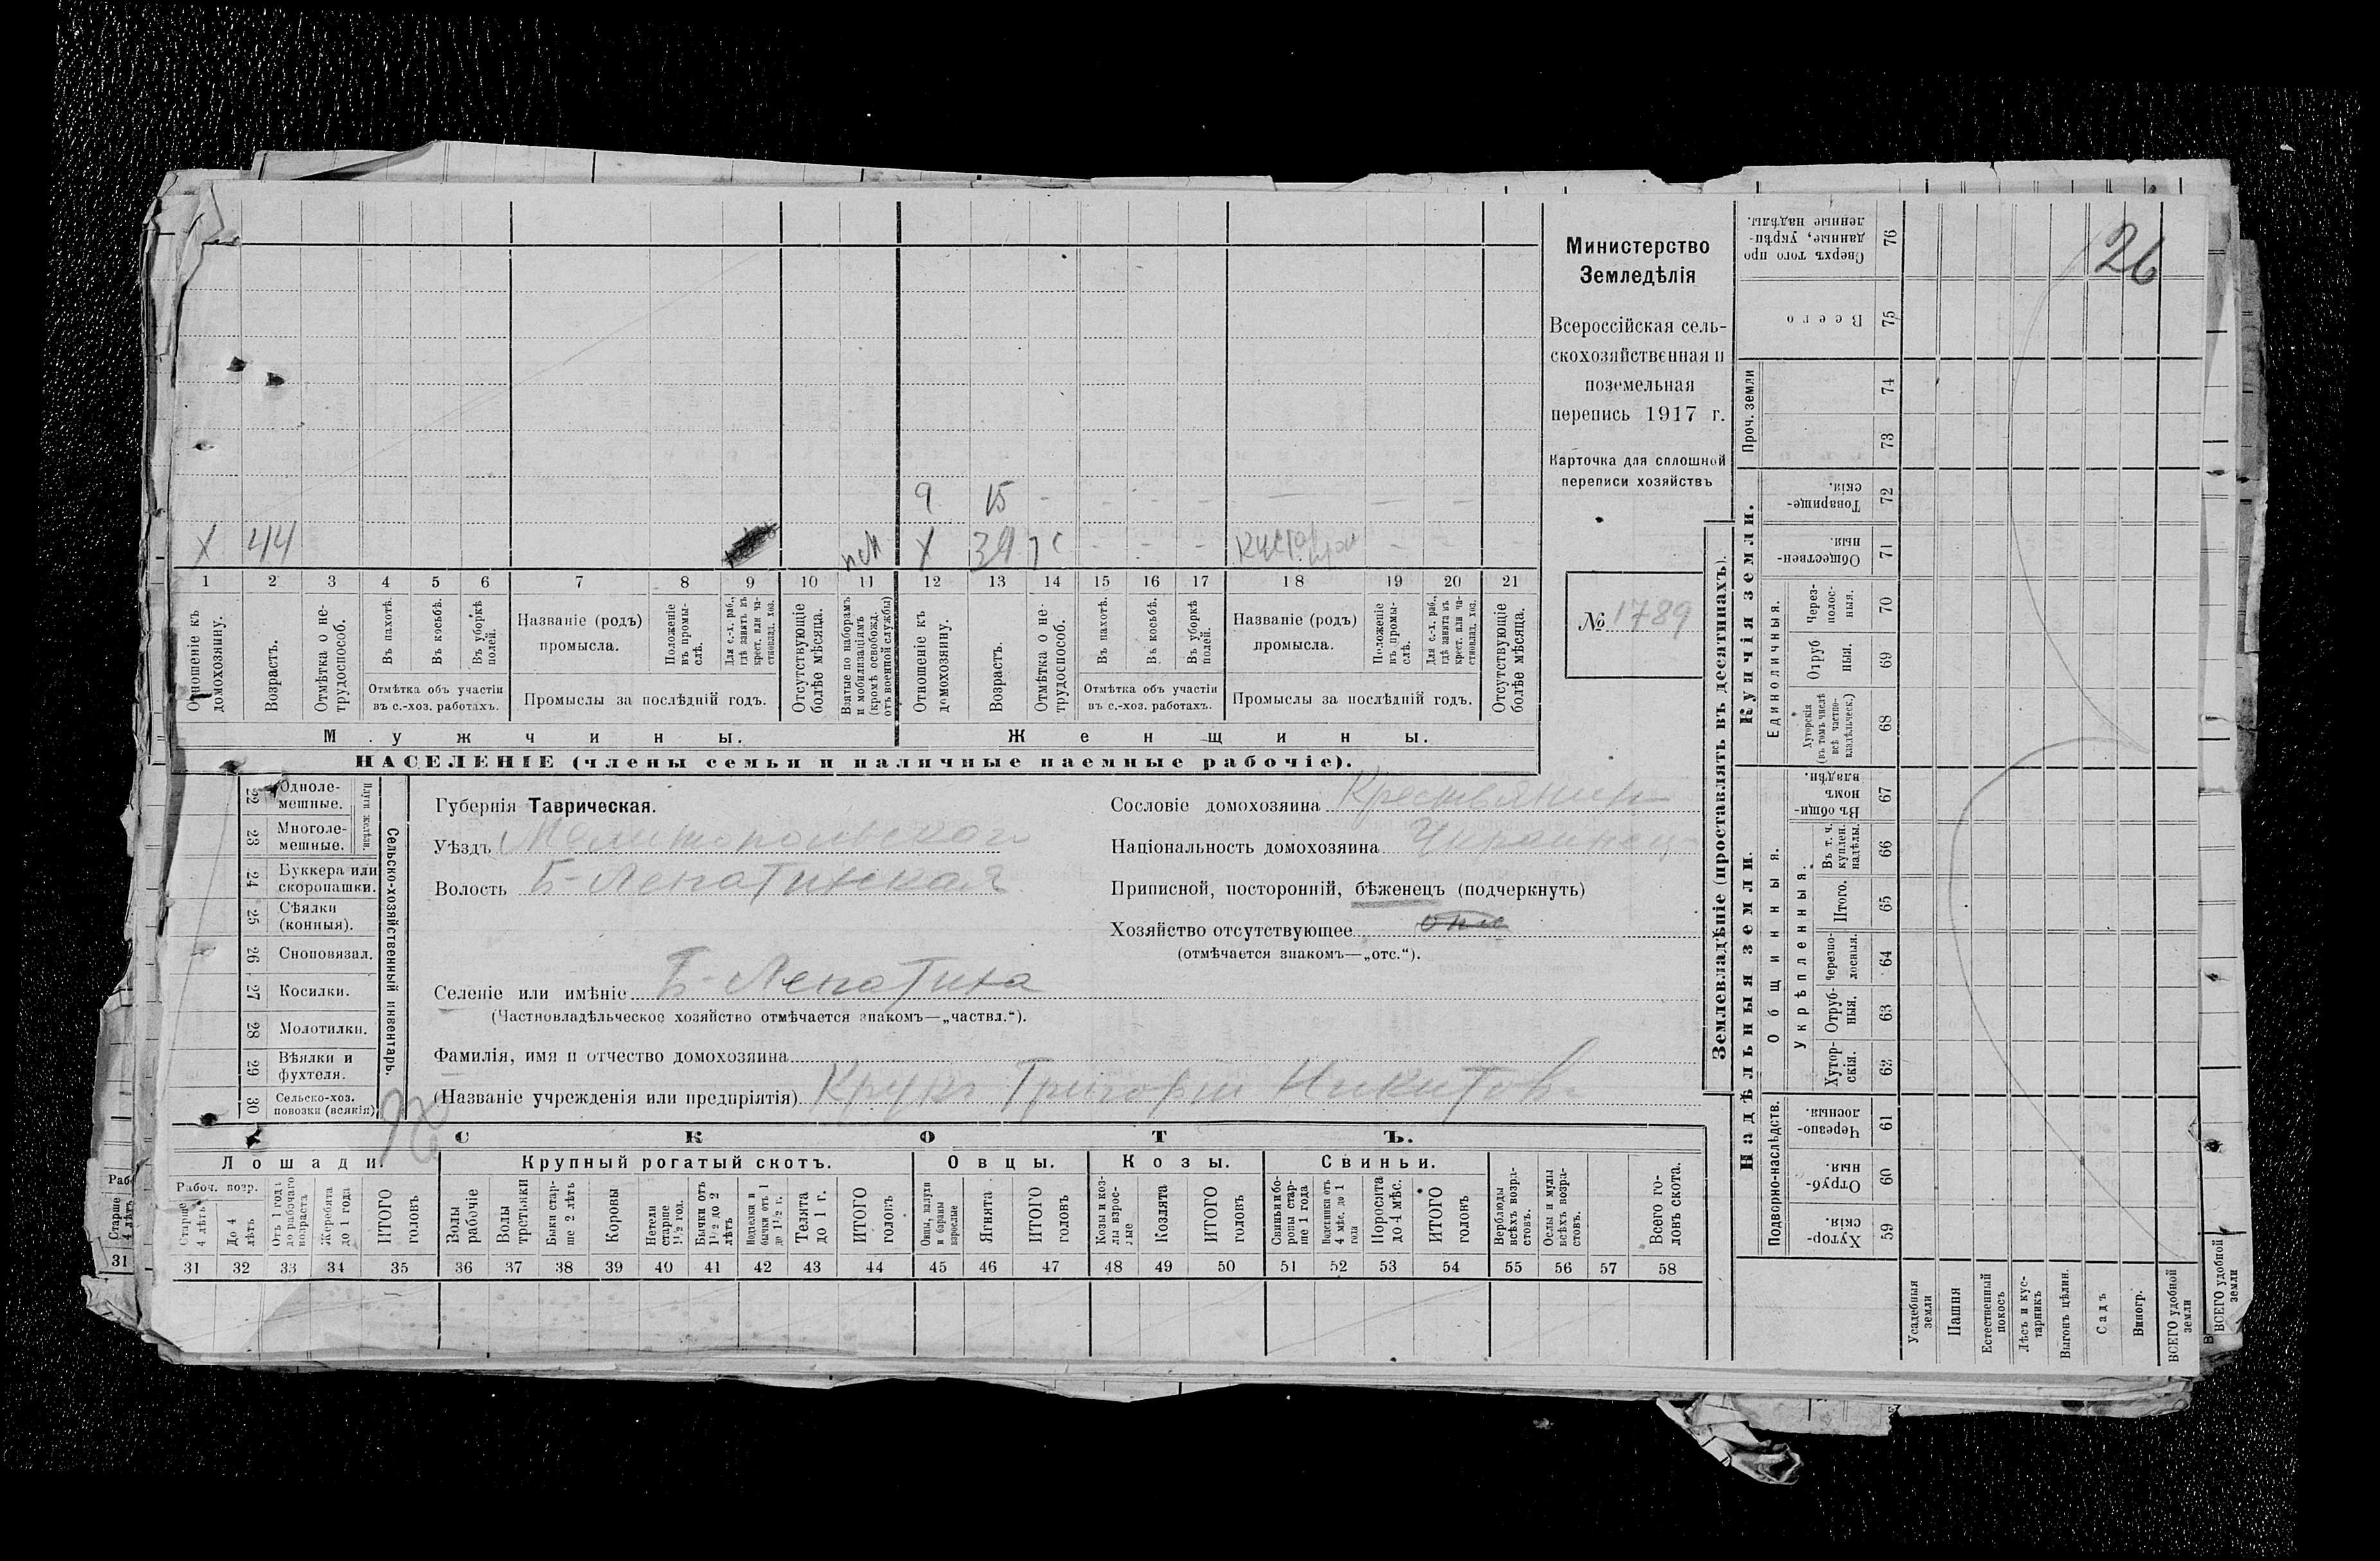 26
Министерство
Земледѣлія
Всероссійская сель-
скохозяйственная и
поземельная
перепись 1917 г.
Карточка для сплошной
переписи хозяйствъ
№ 1789
9 15 - - - - - - - -
X 44
X 39
1 2 3 4 5 6 7 8 9 10 11 12 13 14 15 16 17 18 19 20 21
Отношеніе къ домохозяину.
Возрастъ.
Отмѣтка о не-
трудоспособ.
Въ пахотѣ.
Въ косьбѣ.
Въ уборкѣ
полей.
Отмѣтка объ участіи
въ с.-хоз. работахъ.
Названіе (родъ)
промысла.
Положеніе
въ промы-
слѣ.
Для с.-х. раб.,
гдѣ занятъ въ
крест. или ча-
стновлад. хоз.
Промыслы за послѣдній годъ.
Отсутствующіе
болѣе мѣсяца.
Взятые по наборамъ
и мобилизаціямъ
(кромѣ освобожд.
отъ военной службы)
Отношеніе къ
домохозяину.
Возрастъ.
Отмѣтка о не-
трудоспособ.
Въ пахотѣ.
Въ косьбѣ.
Въ уборкѣ
полей.
Отмѣтка объ участіи
въ с.-хоз. работахъ.
Названіе (родъ)
промысла.
Положеніе
въ промы-
слѣ.
Для с.-х. раб.,
гдѣ занята въ
крест. или ча-
стновлад. хоз.
Промыслы за послѣдній годъ.
Отсутствующіе
болѣе мѣсяца.
Мужчины.
Женщины.
НАСЕЛЕНІЕ (члены семьи и наличные наемные рабочіе).
Сельско-хозяйственный инвентарь.
Плуги желѣзн.
22 Одноле-
мешные.
23 Многоле-
мешные.
24 Буккера или
скоропашки.
25 Сѣялки
(конныя).
26 Сноповязал.
27 Косилки.
28 Молотилки.
29 Вѣялки и
фухтеля.
30 Сельско-хоз.
повозки (всякія)
Губернія Таврическая.
Уѣздъ Мелитопольскаго
Волость Б-Лепатинская
Селеніе или имѣніе Б-Лепатиха
(Частновладѣльческое хозяйство отмѣчается знакомъ—„частвл.“).
Фамилія, имя и отчество домохозяина
(Названіе учрежденія или предпріятія) Григорій Никитов
Сословіе домохозяина Крестьянин
Національность домохозяина Украинец
Приписной, посторонній, бѣженецъ (подчеркнуть)
Хозяйство отсутствующее
(отмѣчается знакомъ—„отс.“).
СКОТЪ.
Лошади. Крупный рогатый скотъ. Овцы. Козы. Свиньи.
Рабоч. возр.
Старше
4 лѣтъ
До 4
лѣтъ
Отъ 1 года
до рабочаго
возраста
Жеребята
до 1 года
ИТОГО
головъ
Волы
рабочіе
Волы
третьяки
Быки стар-
ше 2 лѣтъ
Коровы
Нетели
старше
1½ год.
Бычки отъ
1½ до 2
лѣтъ
Подтелки и
бычки отъ 1
до 1½ г.
Телята
до 1 г.
ИТОГО
головъ
Овцы, валухи
и бараны
взрослые
Ягнята
ИТОГО
головъ
Козы и коз-
лы взрос-
лые
Козлята
ИТОГО
головъ
Свиньи и бо-
ровы стар-
ше 1 года
Подсвинки отъ
4 мѣс. до 1
года
Поросята
до 4 мѣс.
ИТОГО
головъ
Верблюды
всѣхъ возра-
стовъ.
Ослы и мулы
всѣхъ возра-
стовъ.
Всего го-
ловъ скота.
31 32 33 34 35 36 37 38 39 40 41 42 43 44 45 46 47 48 49 50 51 52 53 54 55 56 57 58
Землевладѣніе (проставлять въ десятинахъ).
Купчія земли.
Надѣльныя земли.
Сверхъ того про
данные, укрѣп-
ленные надѣлы.
76
Всего
75
Проч. земли
74
73
Товарище-
скія.
72
Обществен-
ныя.
71
Единоличныя.
Через-
полос-
ныя.
70
Отруб
ныя.
69
Хуторскія
(въ томъ числѣ
всѣ частно-
владѣльческ.)
68
Общинныя.
Въ общин
номъ
владѣн.
67
Укрѣпленныя.
Въ т. ч.
куплен.
надѣлы.
66
Итого.
65
Черезпо-
лосныя.
64
Отруб-
ныя.
63
Хутор-
скія.
62
Подворно-наслѣдств.
Черезпо-
лосныя.
61
Отруб-
ныя.
60
Хутор-
скія.
59
Усадебныя
земли
Пашня
Естественный
покосъ
Лѣсъ и кус-
тарникъ
Выгонъ цѣлин.
Садъ
Виногр.
ВСЕГО удобной
земли
ВСЕГО удобной
земли
Старше
4 лѣтъ
31